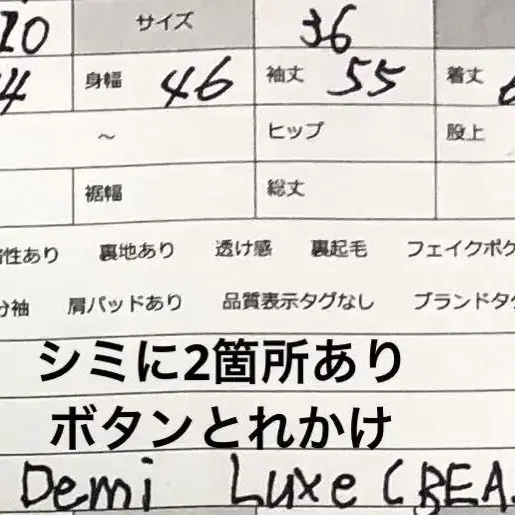 10 サイズ 36
4 身幅 46 袖丈 55 着丈
～ ヒップ 股上
裾幅 総丈
性あり 裏地あり 透け感 裏起毛 フェイクポケ
分袖 肩パッドあり 品質表示タグなし ブランドタグ
シミに2箇所あり
ボタンとれかけ
Demi Luxe (BEA